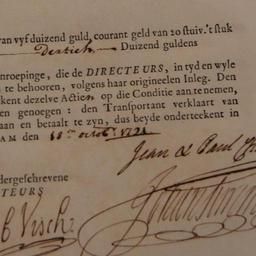 van vyf duizend guld, courant geld van 20 stuiv. 't stuk
Dertich Duizend guldens
nroepinge, die de DIRECTEURS, in tyd en wyle
te behooren, volgens haar origineelen Inleg. Den
kent dezelve Actien op die Conditie aan te nemen,
en genoegen: den Transportant verklaart van
aan en betaalt te zyn, dus beyde onderteekent in
AM den octob.
Jean & Paul
dergeschrevene
CTEURS
Visch